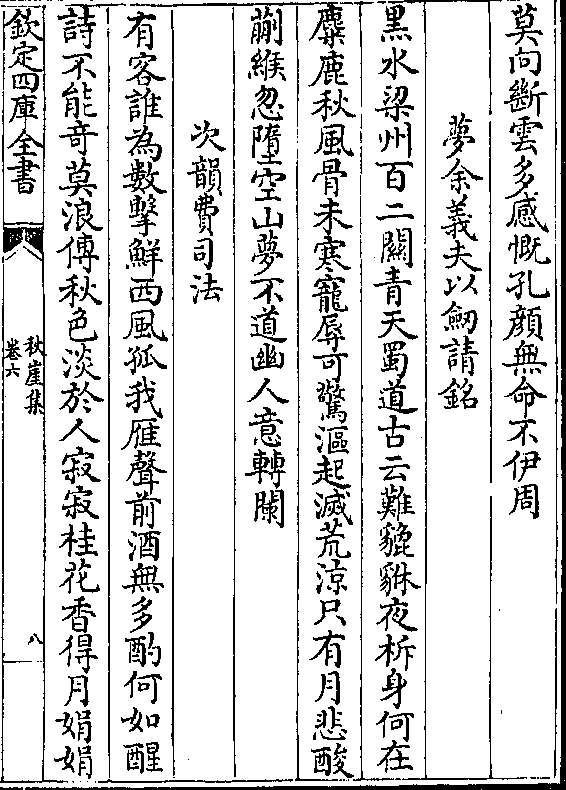 莫向斷雲多感慨孔顔無命不伊周
夢余義夫以劒請銘
黒水梁州百二關青天蜀道古云難貔貅夜柝身何在
麋鹿秋風骨未寒寵辱可驚漚起滅荒涼只有月悲酸
蒯緱忽墮空山夢不道幽人意轉闌
次韻費司法
有客誰為數擊鮮西風孤我雁聲前酒無多酌何如醒
詩不能奇莫浪傳秋色淡於人寂寂桂花香得月娟娟
欽定四庫全書
秋崖集
卷六
八